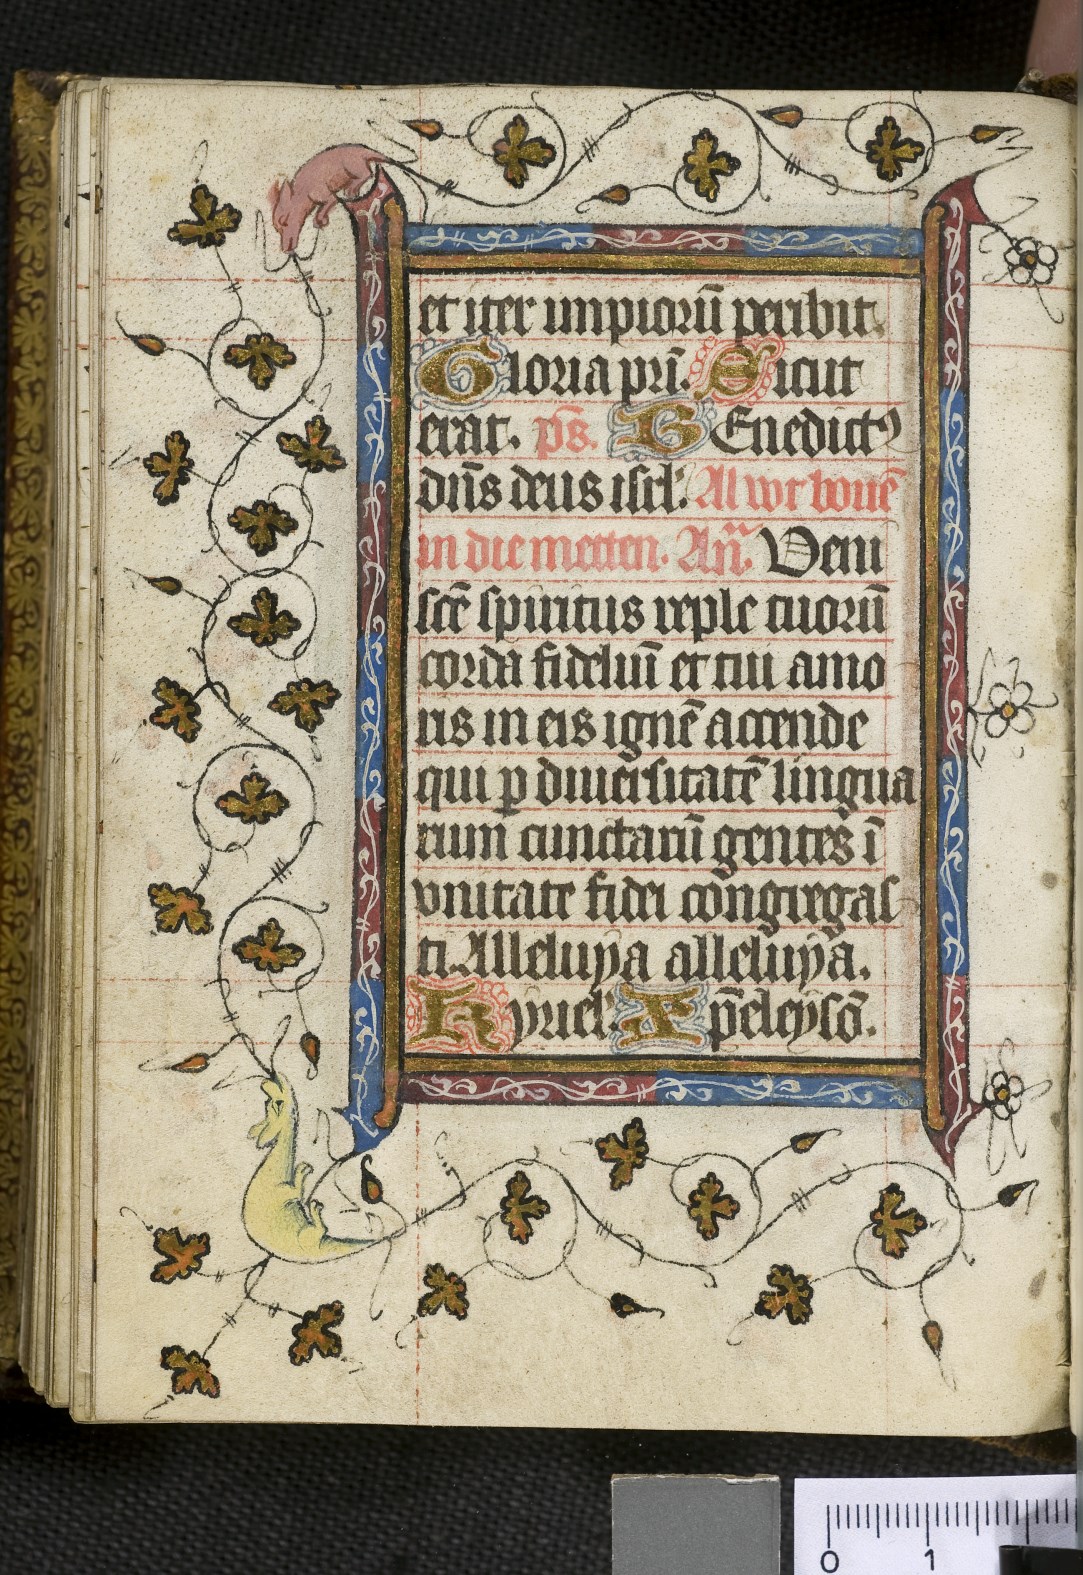 et iter impiorū peribit.
Gloria pr̄i. Sicut
erat. ps̄. BEnedictꝰ
dn̄s deus isrl'. Al wr bouē
in die metten. An̄. Veni
scē spiritus reple tuorū
corda fideliū et tui amo
ris in eis ignē accende
qui p diuersitatē lingua
rum cunctarū gentes ī
vnitate fidei congregas
ti. Alleluya alleluya.
Kyriel'. Xp̄eleysō.
0 1